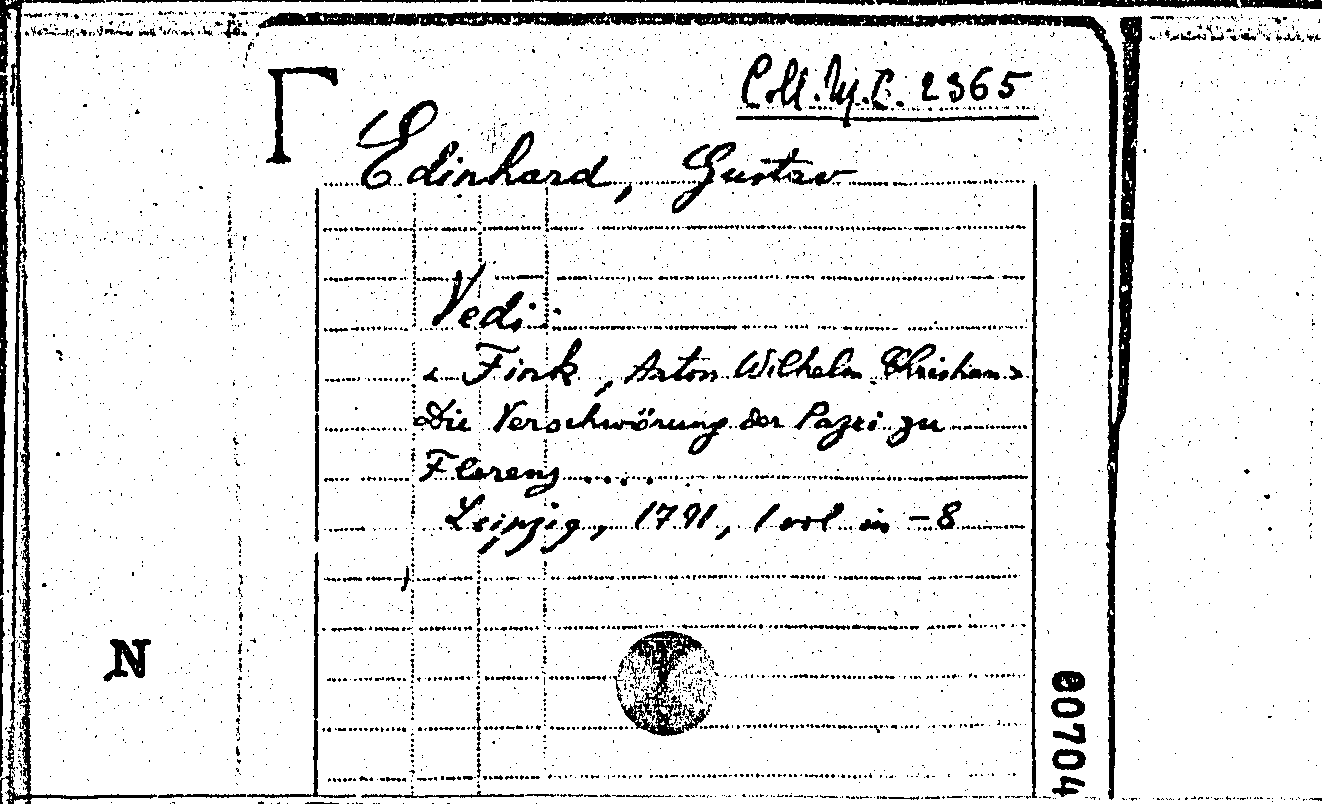 Coll. M.C. 2365
Edinhard, Gustav
Vedi:
< Fink, Anton Wilhelm Christian >
Die Verschwörung der Pazzi zu
Florenz ....
Leipzig, 1791, 1 vol in -8
N
00704